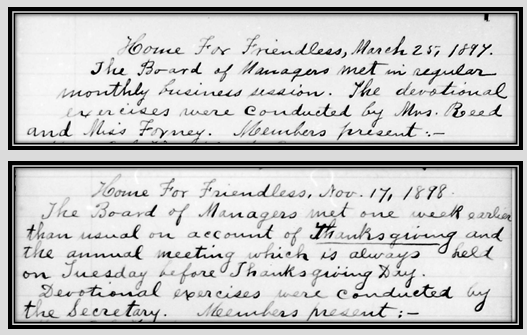 Home For Friendless, March 25, 1897.
The Board of Managers met in regular
monthly business session. The devotional
exercises were conducted by Mrs. Reed
and Miss Forney. Members present:-
Home For Friendless, Nov. 17, 1898.
The Board of Managers met one week earlier
than usual on account of Thanksgiving and
the annual meeting which is always held
on Tuesday before Thanksgiving Day.
Devotional exercises were conducted by
the Secretary. Members present:-